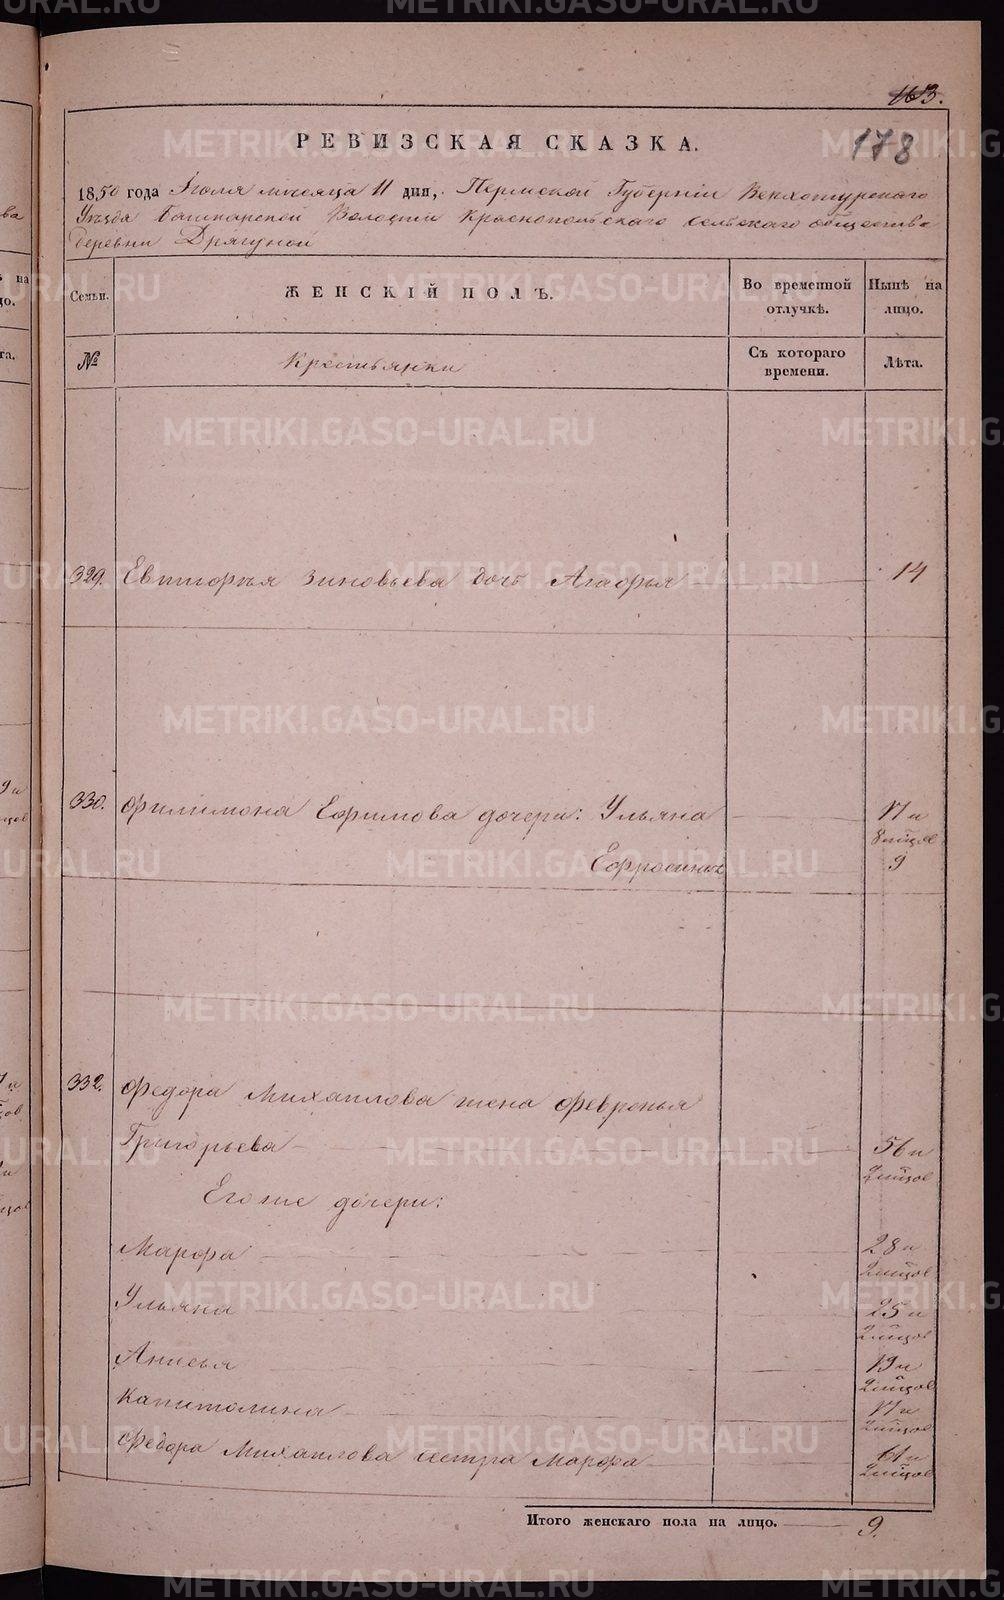 163.
РЕВИЗСКАЯ СКАЗКА.
178
1850 года Іюля месяца 11 дня, Пермской Губерніи Верхотурскаго
Уезда Башкарской Волости Краснопольскаго сельскаго общества
деревни Дрягуной
Семьи.
ЖЕНСКІЙ ПОЛЪ.
Во временной отлучкѣ.
Нынѣ на лицо.
№
Крестьянки
Съ котораго времени.
Лѣта.
329. Евпигорья Зиновьева дочь Агафья 14
330. Филимона Ефимова дочери: Ульяна 17 и
8 мцов
Ефросинья 9
332. Федора Михаилова жена Февронья
Григорьева 56 и
2 мцов
Его же дочери:
Марфа 28 и
2 мцов
Ульяна 25 и
2 мцов
Анисья 19 и
2 мцов
Капитолина 17 и
2 мцов
Федора Михаилова сестра Марфа 61 и
2 мцов
Итого женскаго пола на лицо. 9.
METRIKI.GASO-URAL.RU